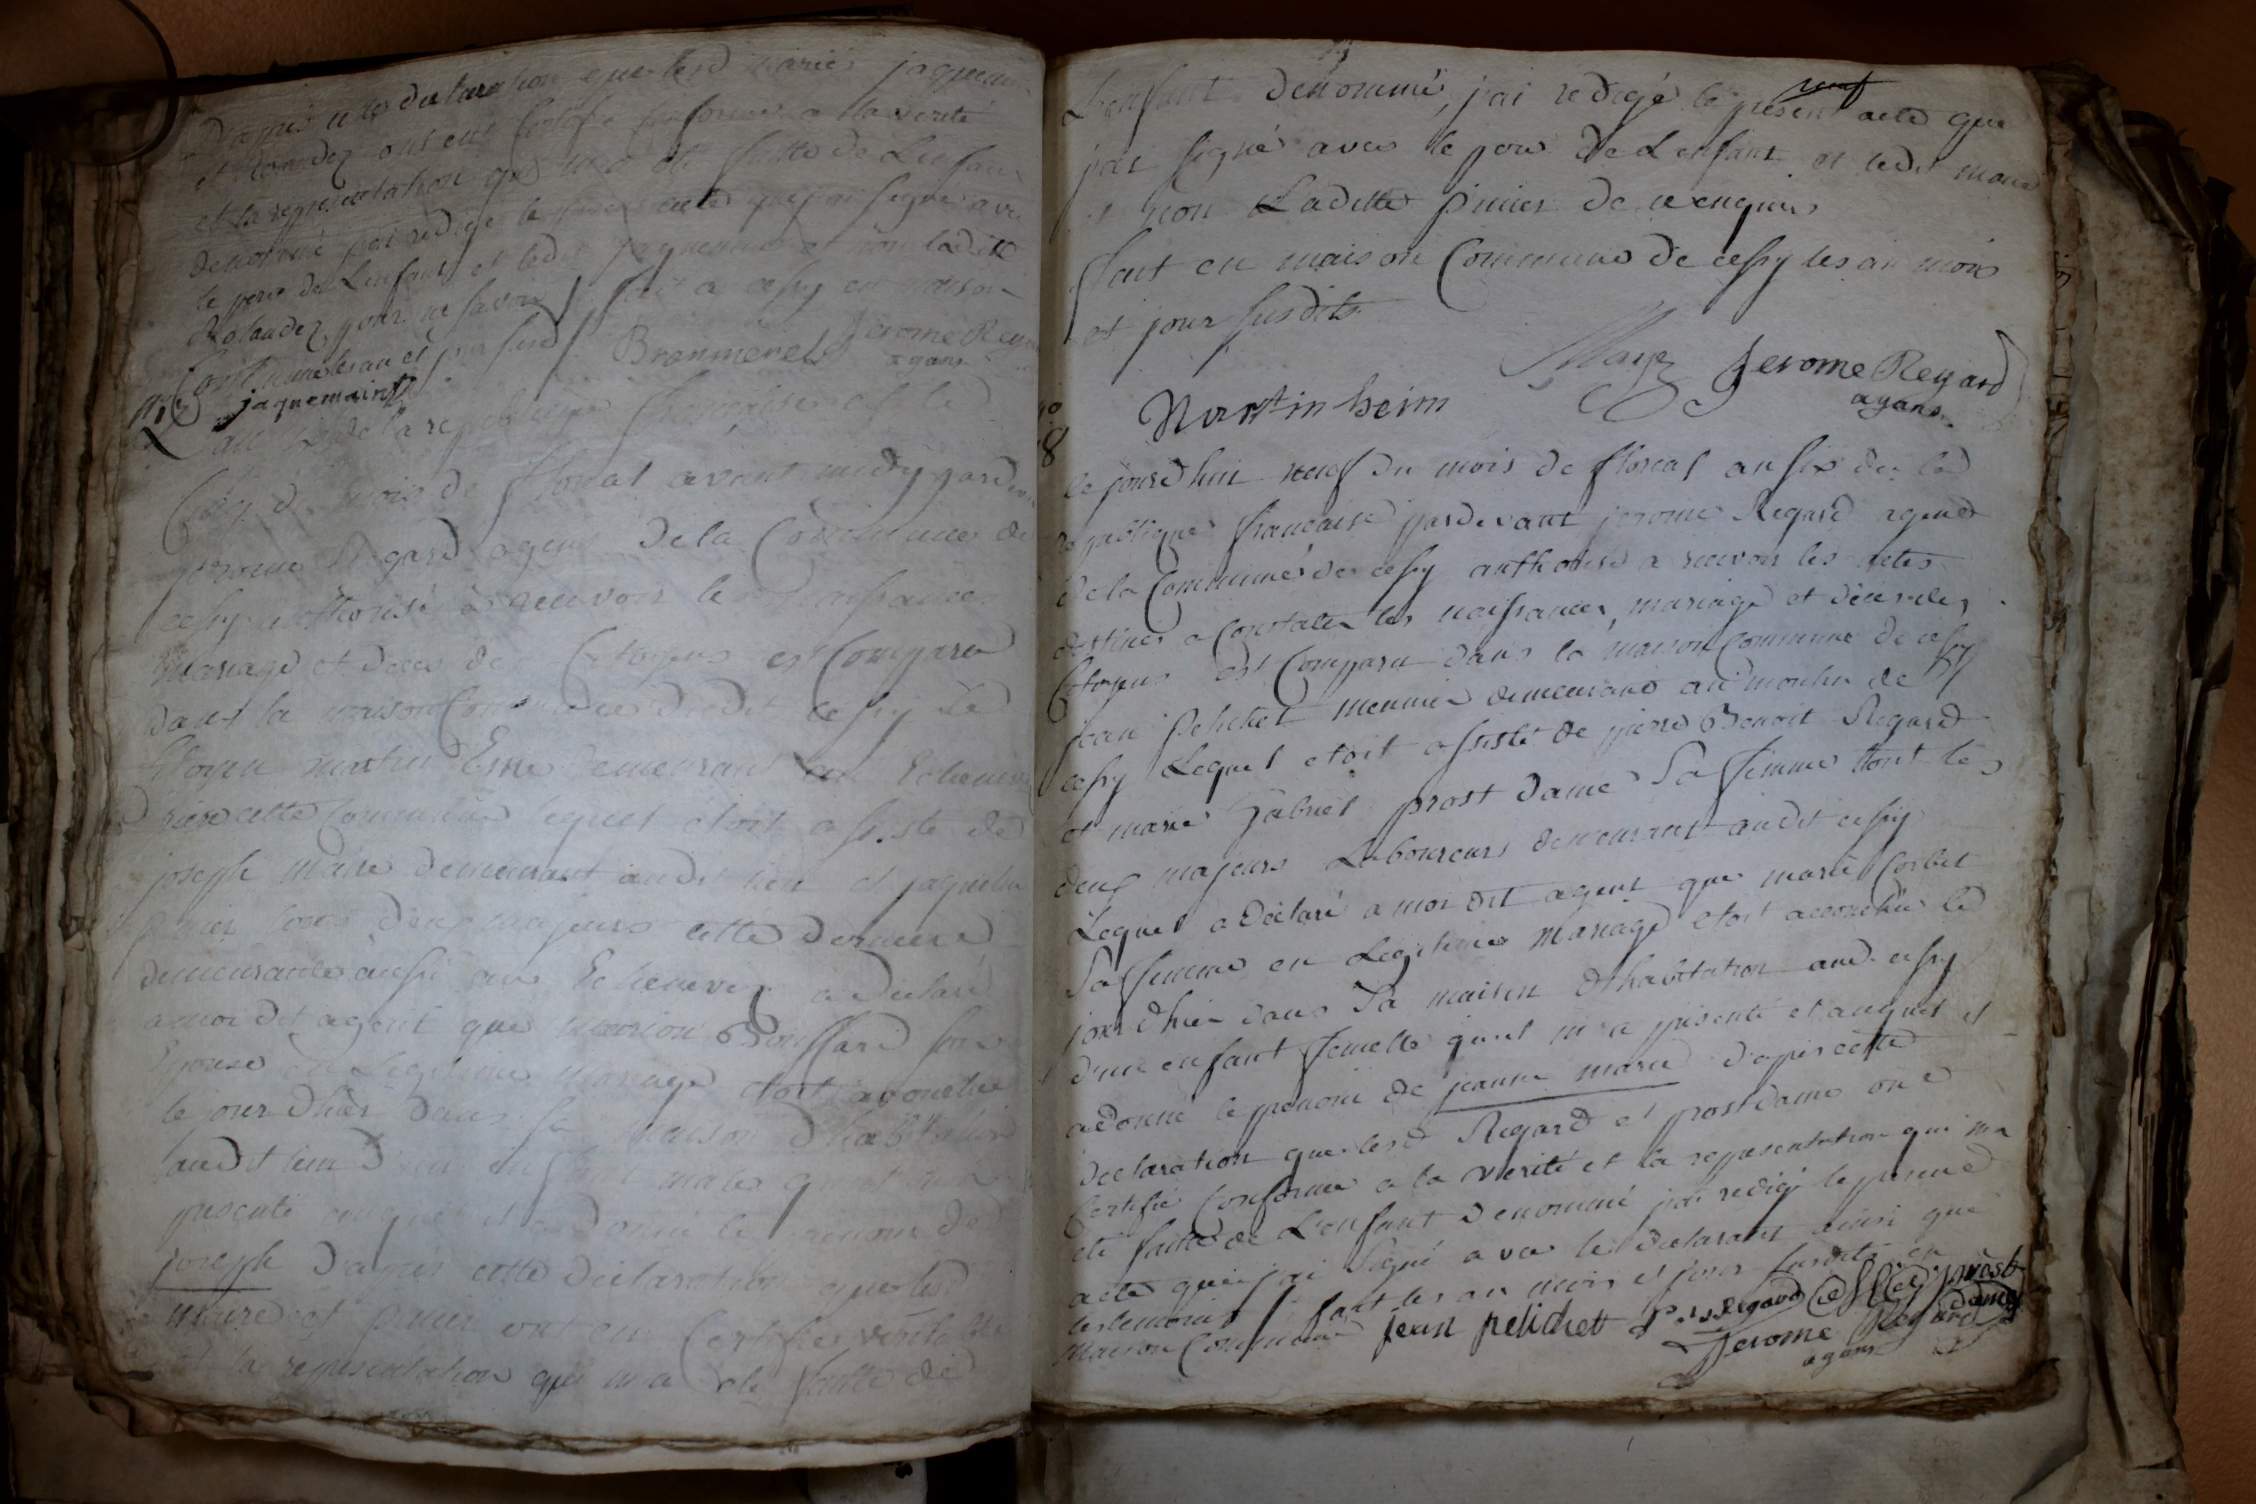 D'apres cette declaration que lesd mariés jaquemin
et Rolandez ont eu Certifié Conforme a la verité
et la representation qui m'a été faitte de L'enfant
denommé j'ai redigé le present acte que j'ai signé avec
le pere de L'enfant et ledit jaquemin et non ladite
Rolandez pour ne savoir / fait a cessy en maison
Commune les an et jour susd /
Brommenel Jerome Regard
agans
jaquemain
L'an six de la republique française et le
du mois de floreal avant midy pardevant
jerome Regard agent de la Commune de
cessy authorisé à recevoir les naissances
mariage et deces des Citoyens est Comparu
dans la maison Commune dudit cessy Le
Citoyen martin Eme demeurant en Echenevex
riere cette Commune lequel etoit assisté de
joseph maire demeurant audit lieu et jaqueline
pinier tous deux majeurs cette derniere
demeurante aussi au Echenevex a declaré
a moi dit agent que marion Bouffard son
Epouse en Legitime mariage etoit acouchée
le jour d'hier dans sa maison d'habitation
audit lieu d'un enfant male qu'il m'a
presenté auquel il a donné le prenom de
joseph D'apres cette declaration que lesd
maire et pinier ont eu Certifié verité
la representation qui m'a été faitte de
L'enfant denommé, j'ai redigé le present acte que
j'ai signé avec le pere de L'enfant et ledit maire
et non Laditte pinier de ce enquis
fait en maison Commune de cessy les an mois
et jour susdits
Maire Jerome Regard
agans
Martin heim
8
Ce jourdhui neuf du mois de floreal an six de la
republique francaise pardevant jerome Regard agent
de la Commune de cessy authorisé a recevoir les actes
destinés a Constater les naissances, mariage et décés des
Citoyens est Comparu dans la maison Commune de cessy
jean pelichet meunier demeurant au moulin de
cessy Lequel etoit assisté de pierre Benoit Regard
et marie gabriel prost dame Sa femme tout les
deux majeurs Laboureurs demeurant audit cessy
Lequel a déclaré a moi dit agent que marie Corbet
Sa femme en Legitime mariage etoit accouchée le
jour d'hier dans Sa maison d'habitation aud. cessy
d'une enfant femelle qu'il m'a présenté et auquel il
a donné le prenom de jeanne marie d'apres cette
declaration que lesd Regard et prost dame ont
Certifié Conforme a la verité et la representation qui m'a
été faitte de L'enfant denommé j'ai redigé le present
acte que j'ai Signé avec le declarant ainsi que
les temoins / fait les an mois et jour susdits en
maison Commune jean pelichet P. B. Regard prost
dame
Jerome Regard
agans